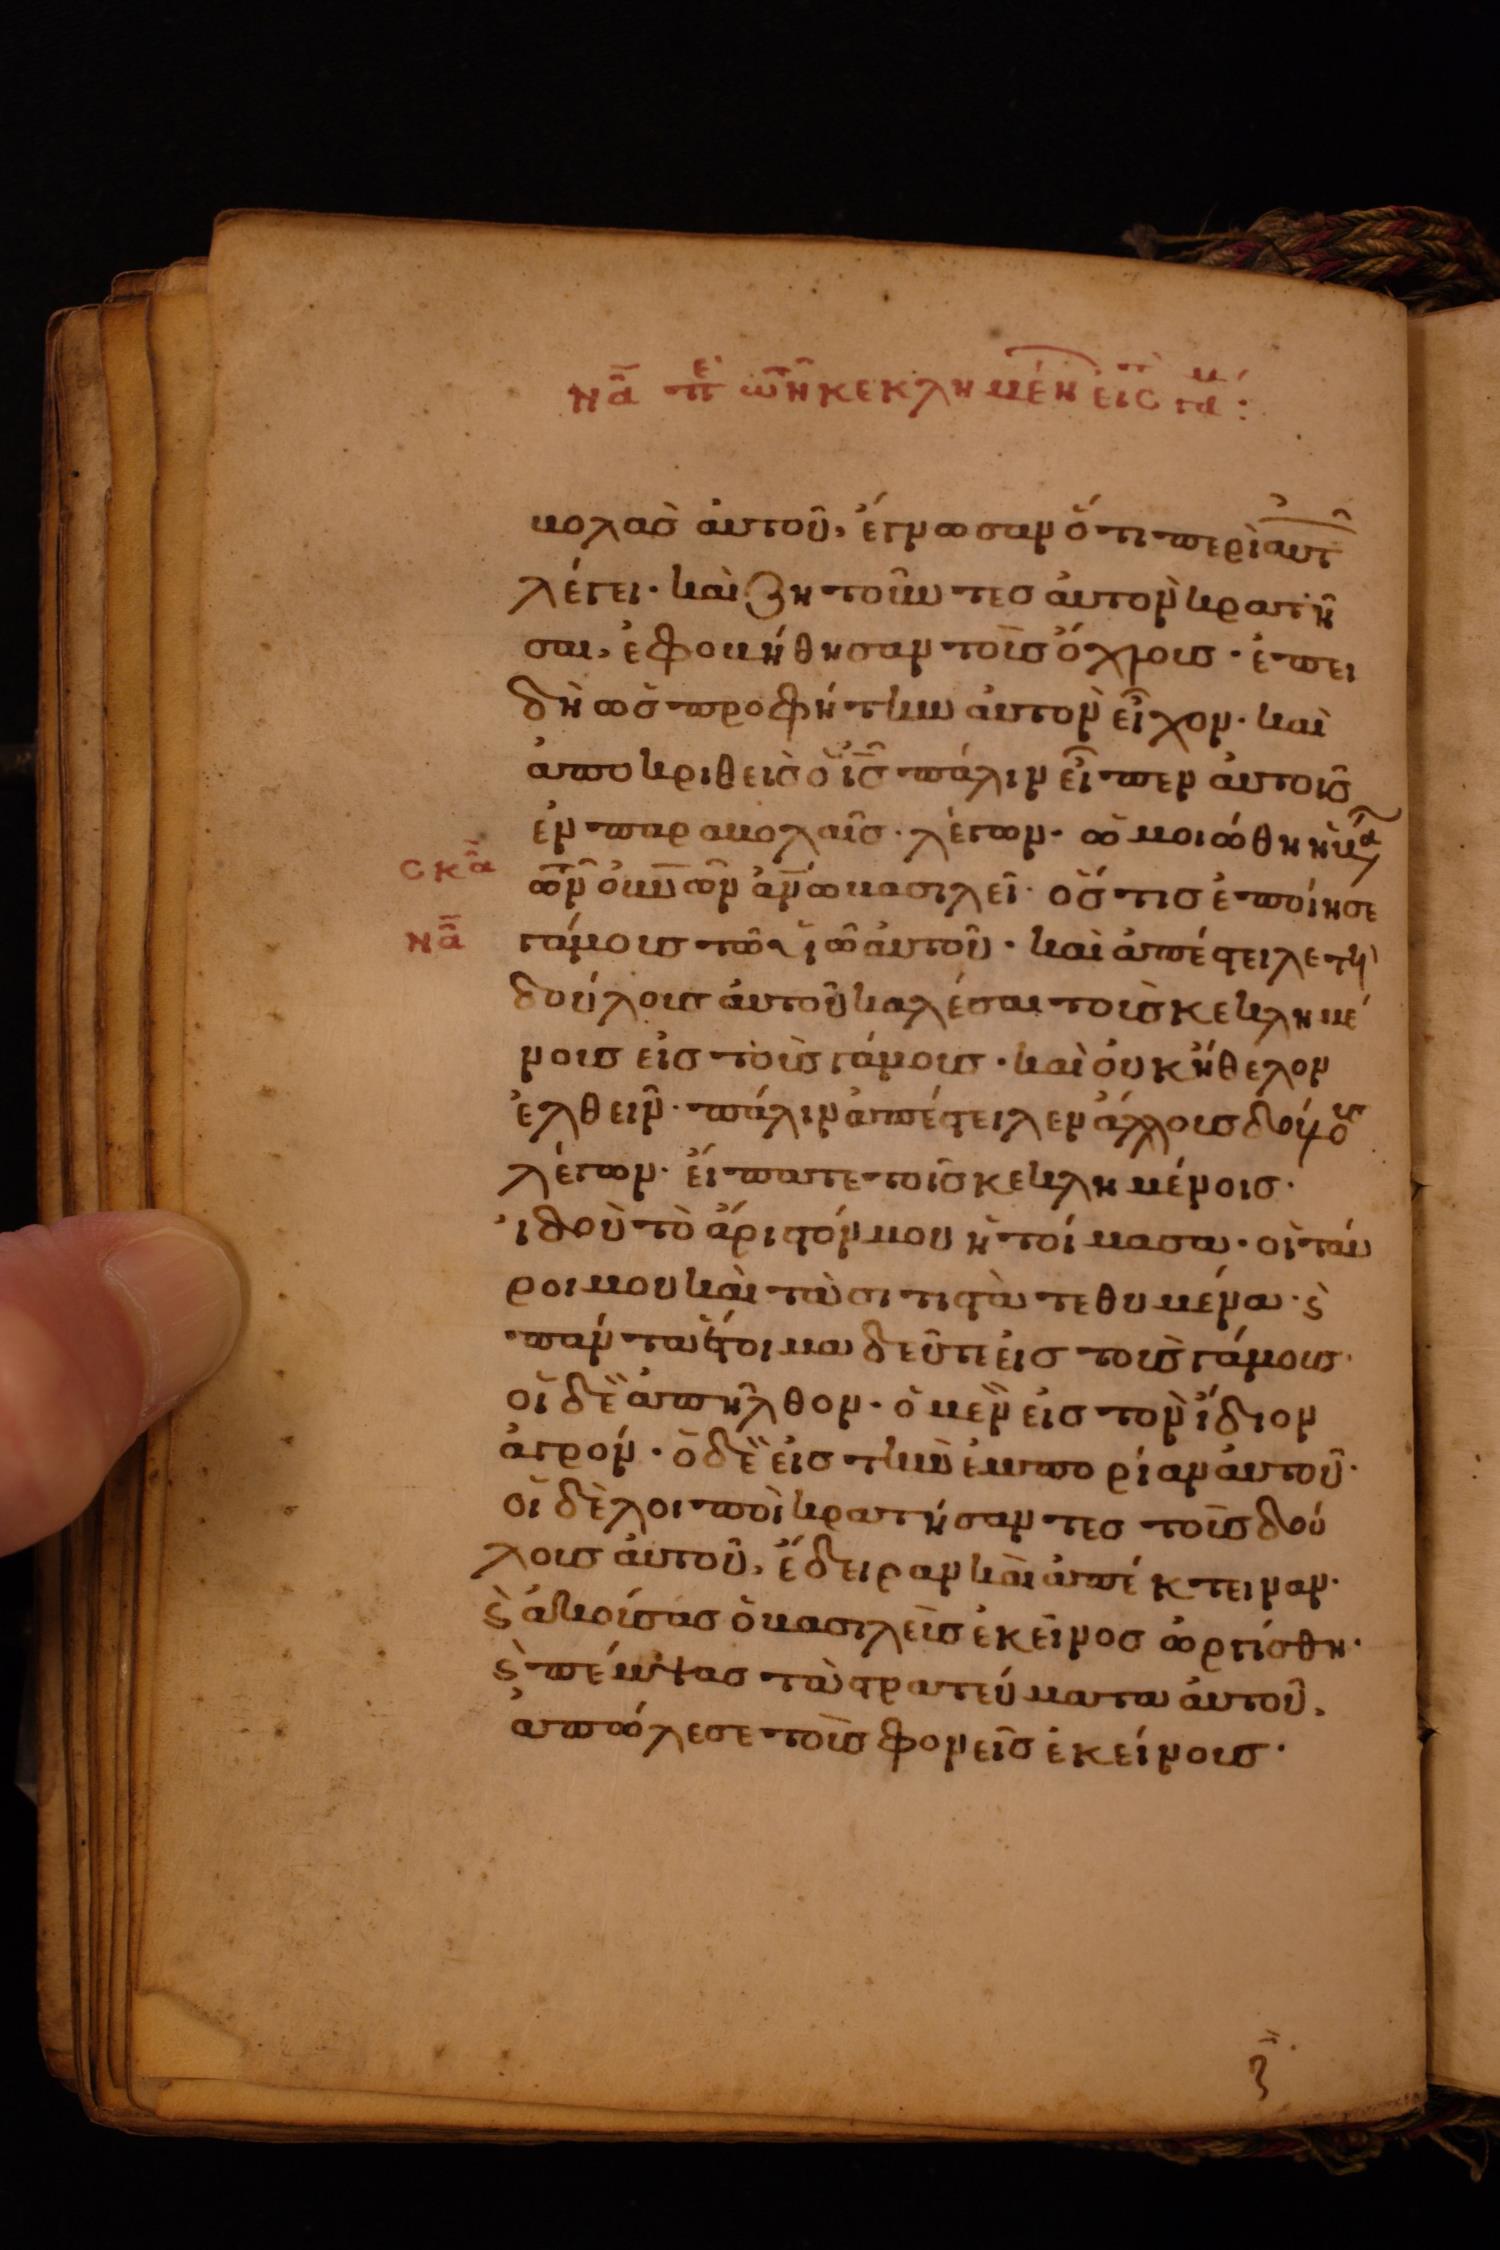 να πε των κεκλημεν εις τ γαμ:
βολὰσ ἀυτοῦ, ἔγνωσαν ὅτι περὶ αυτ
λέγει· καὶ ζητοῦντεσ ἀυτὸν κρατῆ
σαι, ἐφοβήθησαν τοὺσ ὄχλουσ· ἐπει
δὴ ὡσ προφήτην ἀυτὸν εἶχον· καὶ
ἀποκριθεὶσ ὁ ισ πάλιν εἶπεν ἀυτοῖσ
ἐν παραβολαῖσ· λέγων· ὡμοιώθη ἡ βα
σκα
των ουνων ανω βασιλεῖ· ὅστισ ἐποίησε
να
γάμουσ τῶ υἱῶ ἀυτοῦ· καὶ ἀπέστειλε τοὺσ
δούλουσ ἀυτοῦ καλέσαι τοὺσ κεκλημέ
νουσ εἰσ τοὺσ γάμουσ· καὶ ὀυκ ἤθελον
ἐλθεῖν· πάλιν ἀπέστειλεν ἄλλουσ δούλουσ
λέγων· ἔιπατε τοῖσ κεκλημένοισ·
ἰδοὺ τὸ ἄριστόν μου ἡτοίμασα· οἱ ταῦ
ροι μου καὶ τὰ σιτιστὰ τεθυμένα· ϛ̀
πάντα ἕτοιμα δεῦτε εἰσ τοὺσ γάμουσ·
οἱ δὲ ἀπῆλθον· ὁ μὲν εἰσ τὸν ἴδιον
ἀγρόν· ὁ δὲ εἰσ τὴν ἐμπορίαν ἀυτοῦ·
οἱ δὲ λοιποὶ κρατήσαντεσ τοὺσ δού
λουσ ἀυτοῦ, ἔδειραν καὶ ἀπέκτειναν·
ϛ̀ ἀκούσασ ὁ βασιλεὺσ ἐκεῖνοσ ὠργίσθη·
ϛ̀ πέμψασ τὰ στρατεύματα ἀυτοῦ,
ἀπώλεσε τοὺσ φονεῖσ ἐκείνουσ·
ζ